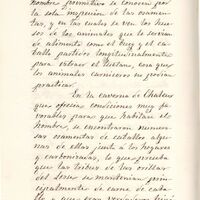 hombre primitivo se conocen por
la sola inspección de las osamen-
tas, y en las cuales se ven los hue-
sos de los animales que le servían
de alimento como el buey y el ca-
ballo partidos longitudinalmente
para extraer el tuétano, cosa que
los animales carniceros no podían
practicar.
En la caverna de
que ofrecía condiciones muy fa-
vorables para que habitara el
hombre, se encontraron numero-
sas osamentas de caballos algu-
nas de ellas junto á los hogares
y carbonizadas, lo que prueba
que las tribus de las orillas
del se mantenían prin-
cipalmente de carne de caba-
llo y que eran verdaderos